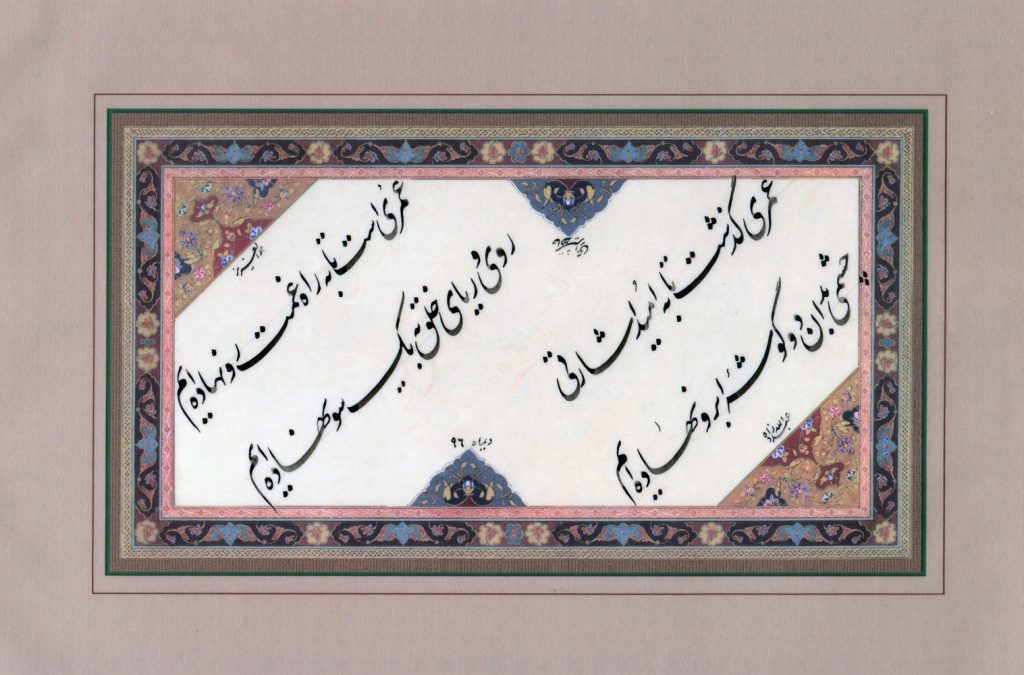 هوالعزیز
عمری گذشت تا به امید اشارتی
چشمی بدان دو گوشۀ ابرو نهاده‌ایم
عمری است تا به راه غمت رو نهاده‌ایم
روی و ریای خلق به یک سو نهاده‌ایم
دیماه ۹۶
عبدالله زاده